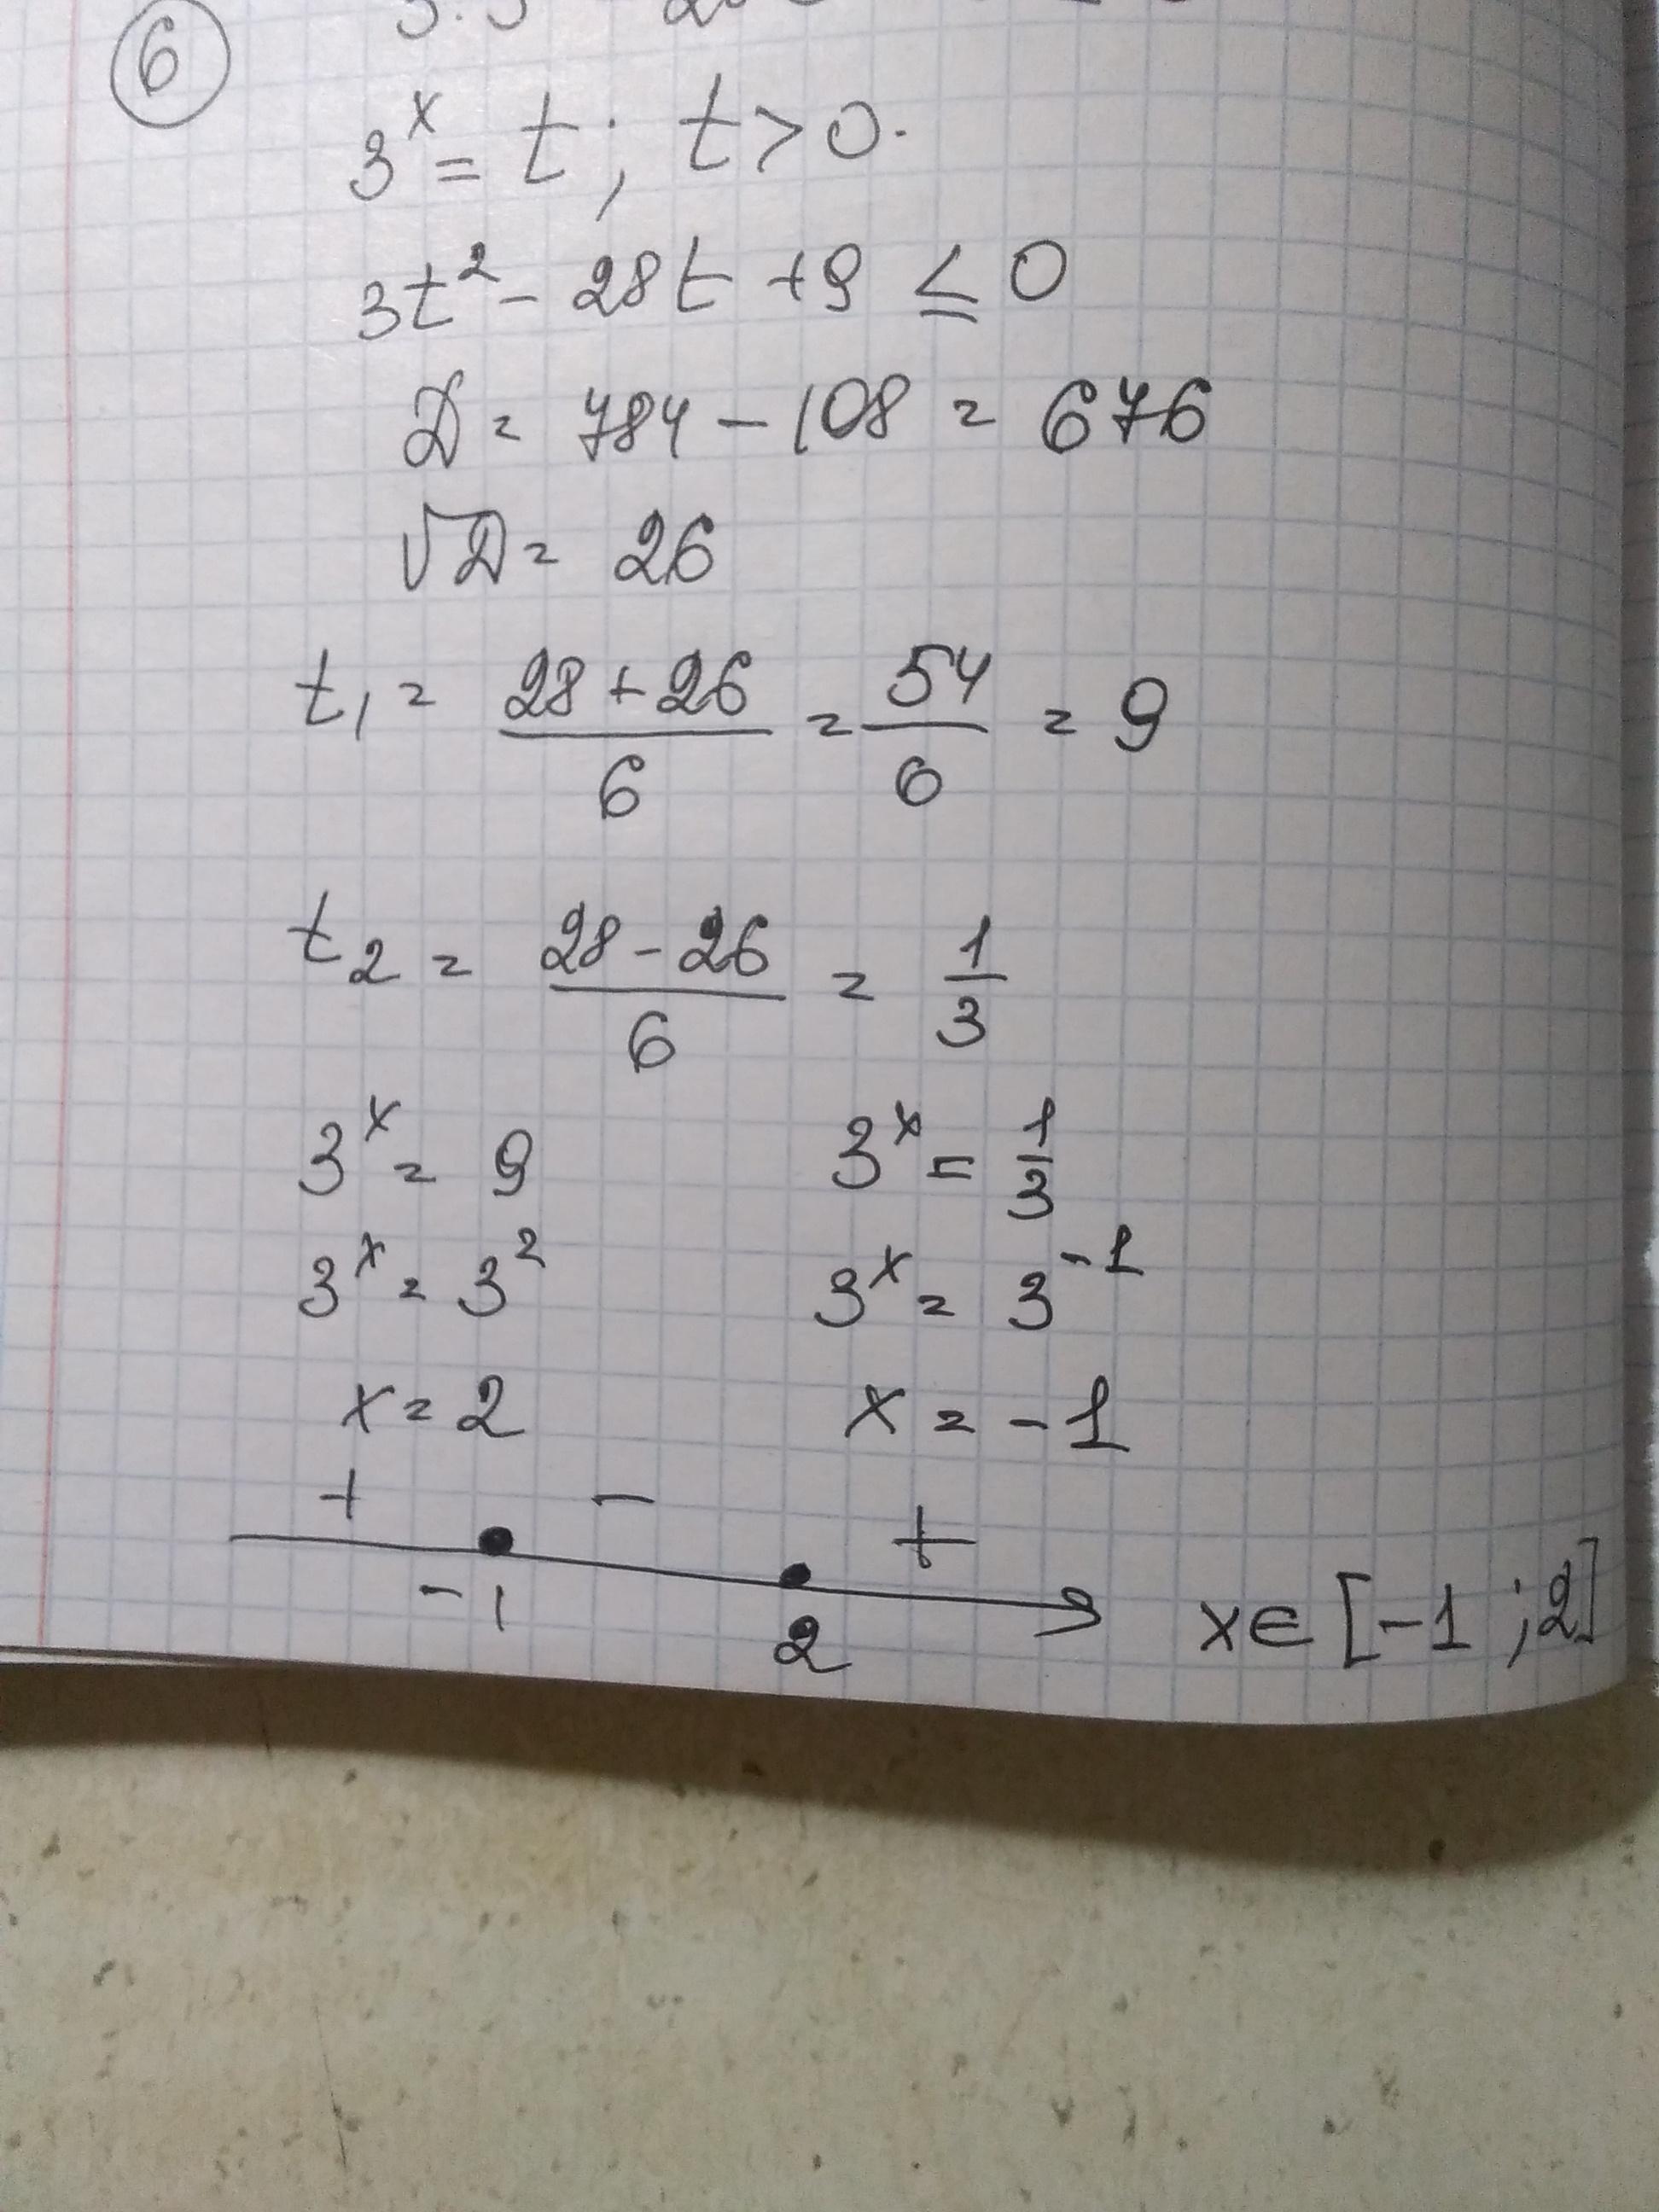 6
3ˣ = t; t > 0.
3t² - 28t + 9 ≤ 0
D = 784 - 108 = 676
√D = 26
t₁ = (28 + 26)/6 = 54/6 = 9
t₂ = (28 - 26)/6 = 1/3
3ˣ = 9 3ˣ = 1/3
3ˣ = 3² 3ˣ = 3⁻¹
x = 2 x = -1
+ - +
-1 2 x ∈ [-1; 2]